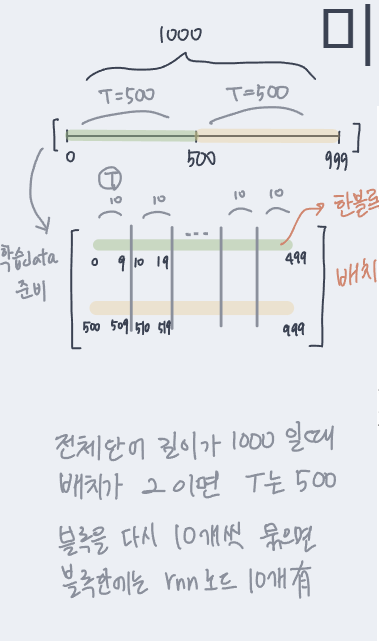 미
1000
T=500 T=500
0 500 999
T
10 10 10 10
한블록
학습data
준비
0 9 10 19 --- 499
배치
500 509 510 519 999
전체단어 길이가 1000 일때
배치가 2 이면 T는 500
블록을 다시 10개씩 묶으면
블록안에는 rnn 노드 10개有